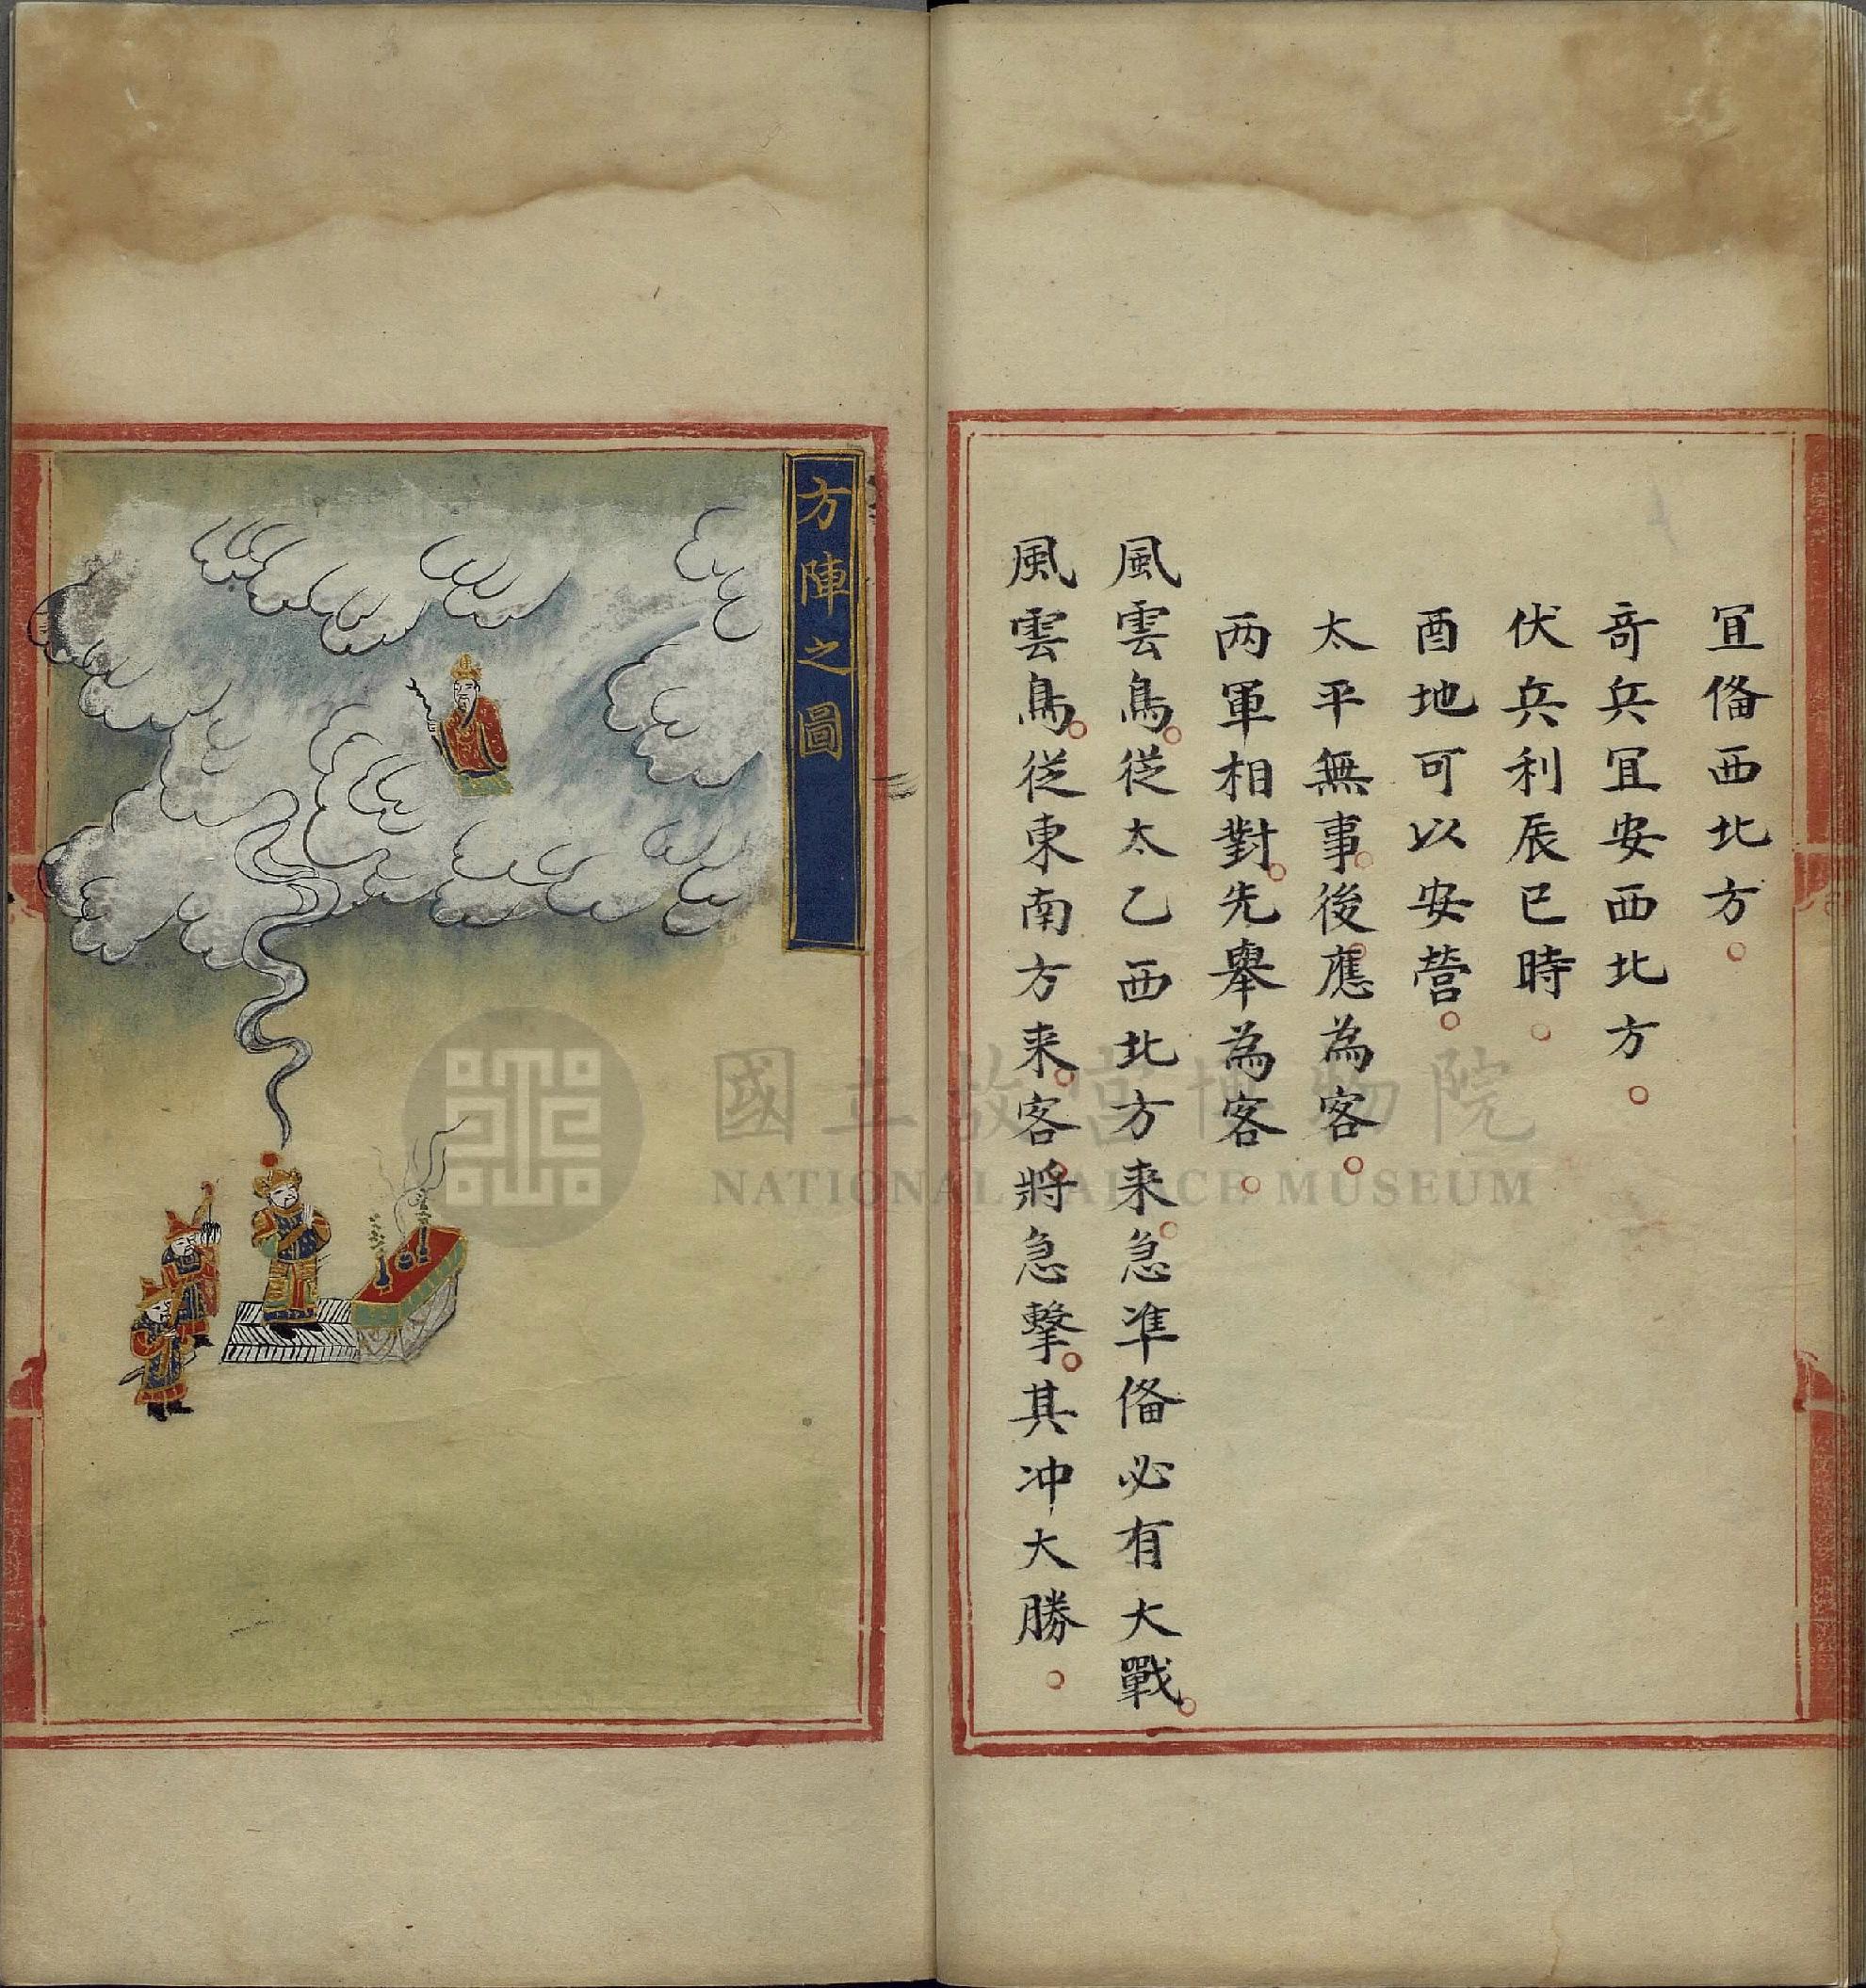 冝俻西北方
竒兵冝安西北方
伏兵利辰巳時
酉地可以安營
太平無事後應為客
两軍相對先舉為客
風雲鳥從太乙西北方来急凖俻必有大戰
風雲鳥從東南方来客將急擊其冲大勝
方陣之圖
國立故宮博物院
NATIONAL PALACE MUSEUM